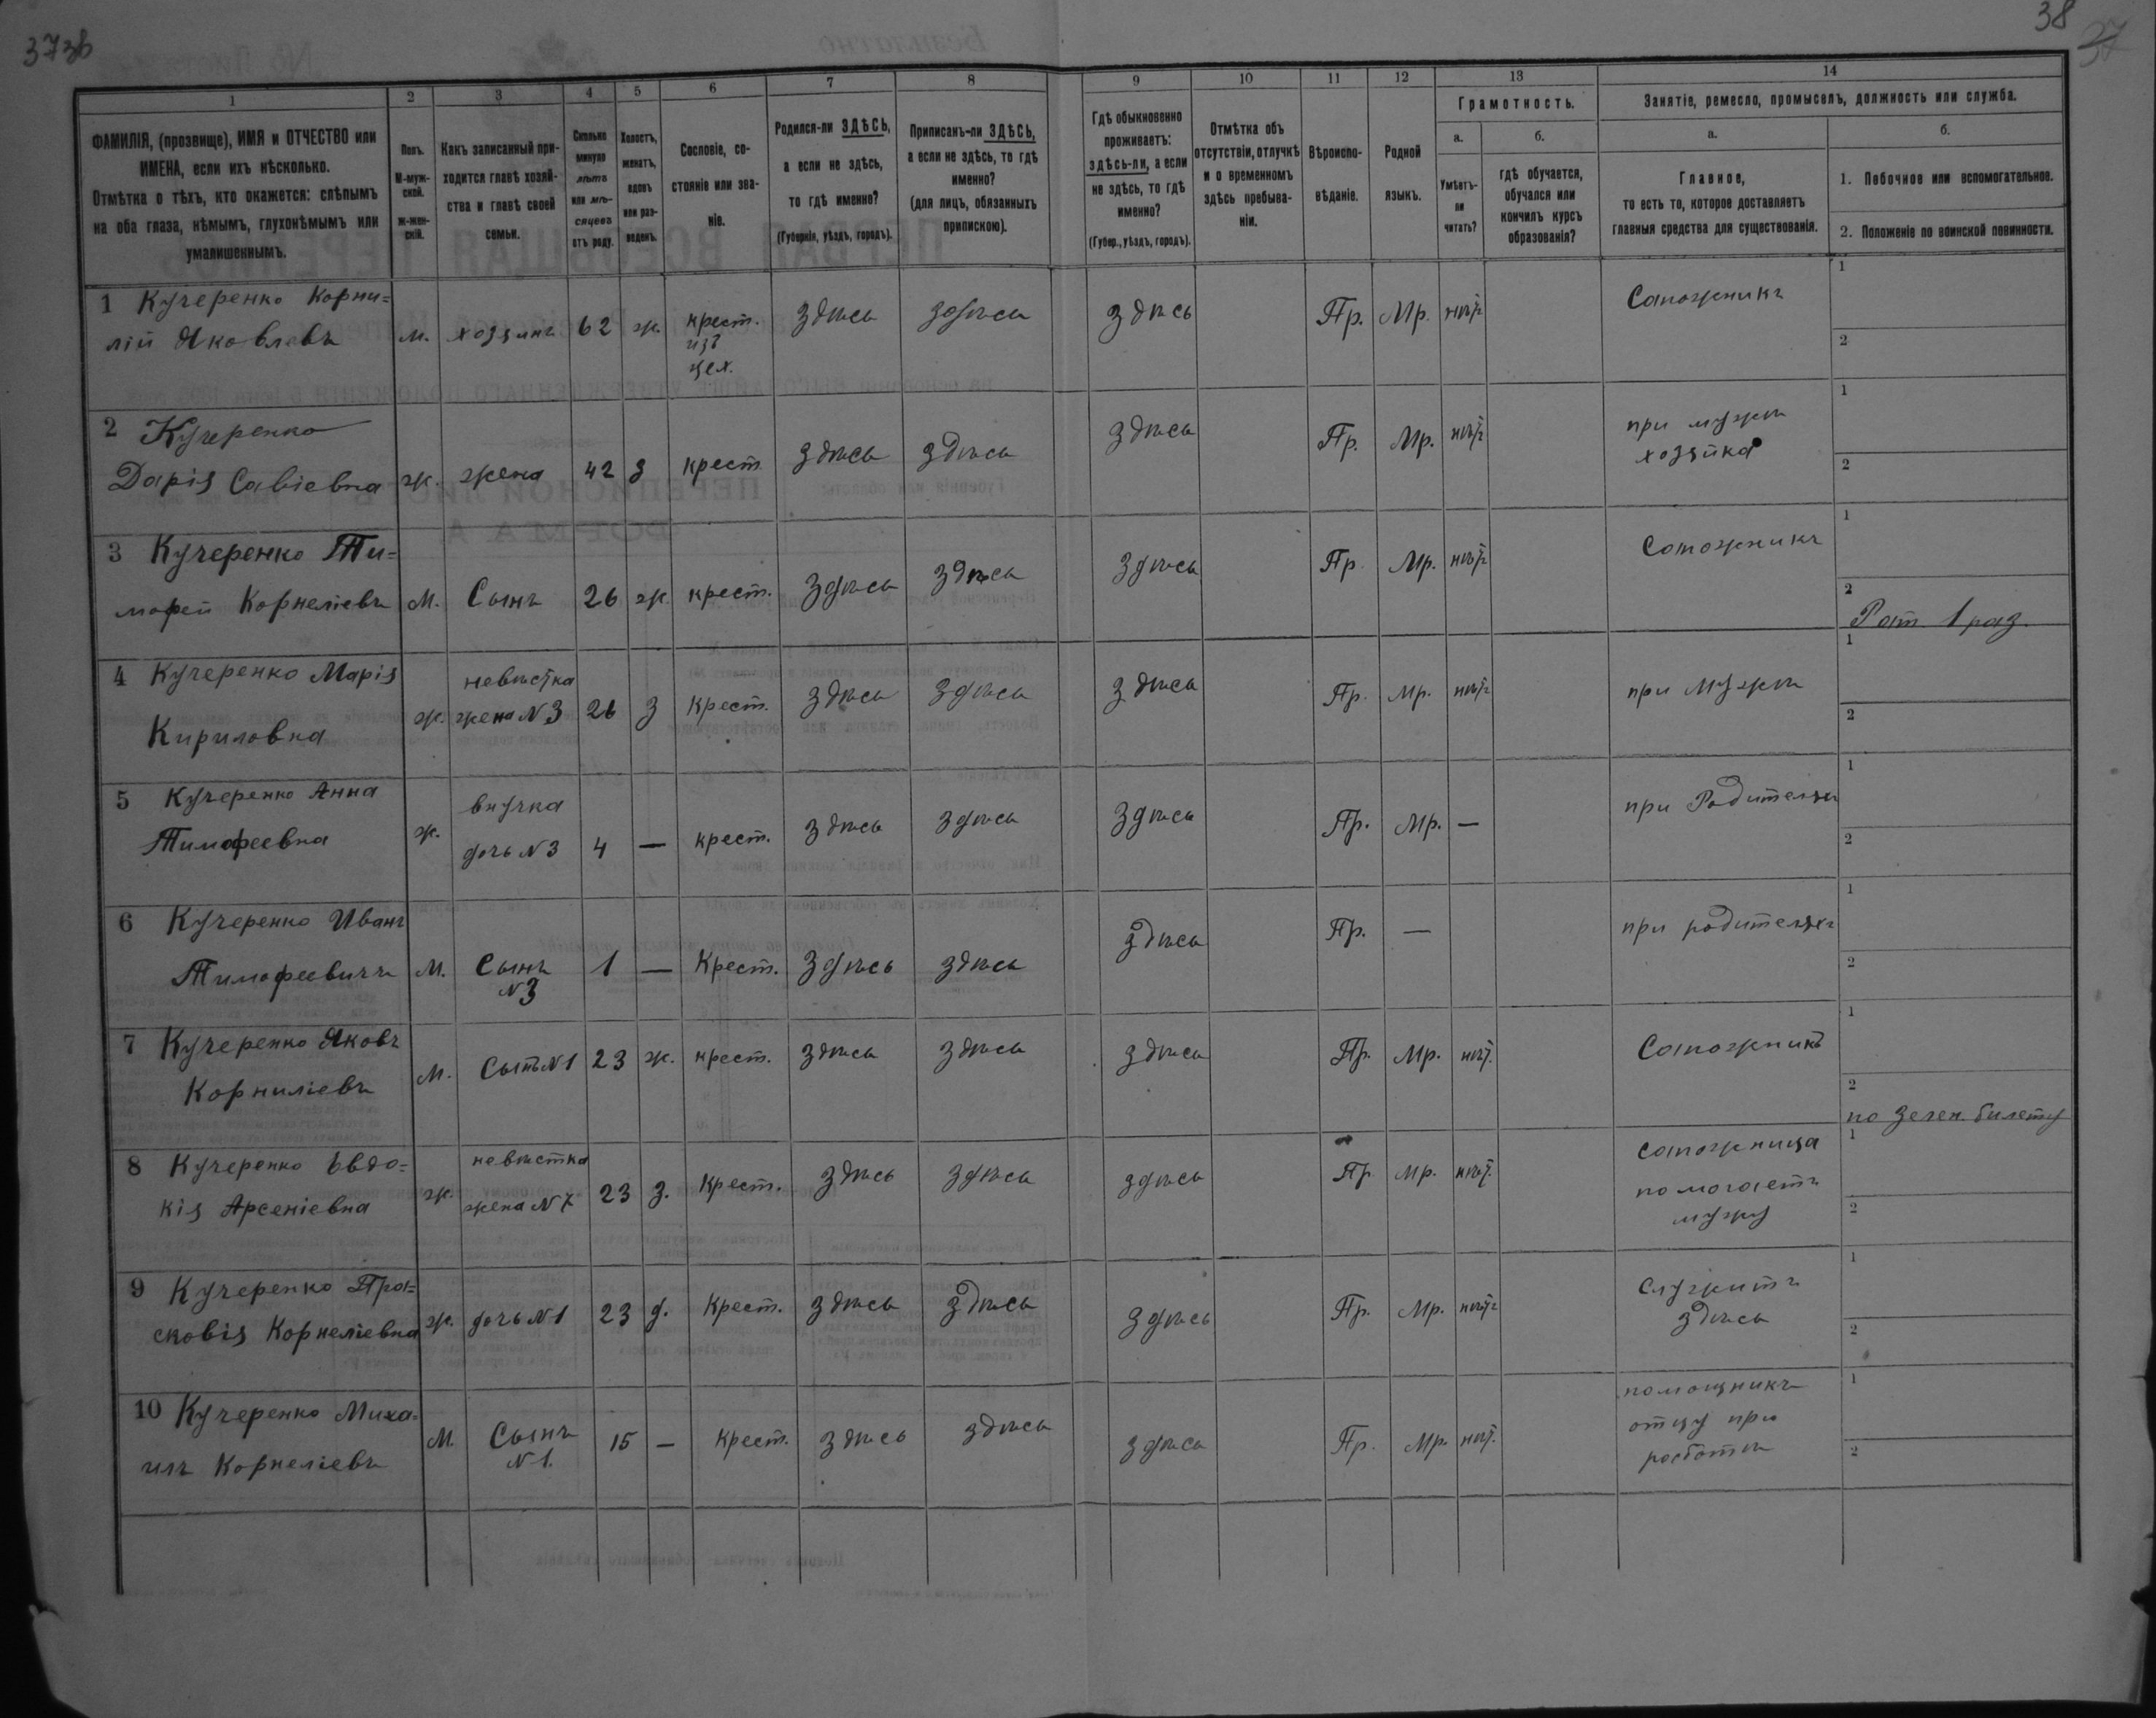 373б
38
37
1 2 3 4 5 6 7 8 9 10 11 12 13 14
ФАМИЛІЯ, (прозвище), ИМЯ и ОТЧЕСТВО или
ИМЕНА, если ихъ нѣсколько.
Отмѣтка о тѣхъ, кто окажется: слѣпымъ
на оба глаза, нѣмымъ, глухонѣмымъ или
умалишеннымъ.
Полъ.
М-муж-
ской.
ж-жен-
скій.
Какъ записанный при-
ходится главѣ хозяй-
ства и главѣ своей
семьи.
Сколько
минуло
лѣтъ
или мѣ-
сяцевъ
отъ роду.
Холостъ,
женатъ,
вдовъ
или раз-
веденъ.
Сословіе, со-
стояніе или зва-
ніе.
Родился-ли ЗДѢСЬ,
а если не здѣсь,
то гдѣ именно?
(Губернія, уѣздъ, городъ).
Приписанъ-ли ЗДѢСЬ,
а если не здѣсь, то гдѣ
именно?
(для лицъ, обязанныхъ
припискою).
Гдѣ обыкновенно
проживаетъ:
здѣсь-ли, а если
не здѣсь, то гдѣ
именно?
(Губер., уѣздъ, городъ).
Отмѣтка объ
отсутствіи, отлучкѣ
и о временномъ
здѣсь пребыва-
ніи.
Вѣроиспо-
вѣданіе.
Родной
языкъ.
Грамотность.
а.
Умѣетъ-
ли
читать?
б.
гдѣ обучается,
обучался или
кончилъ курсъ
образованія?
Занятіе, ремесло, промыселъ, должность или служба.
а.
Главное,
то есть то, которое доставляетъ
главныя средства для существованія.
б.
1. Побочное или вспомогательное.
2. Положеніе по воинской повинности.
1 Кучеренко Корни=
лій Яковлевъ
м. хозяинъ 62 ж. крест.
изъ
цех.
здѣсь здѣсь здѣсь Пр. Мр. нѣтъ Сапожникъ
1
2
2 Кучеренко
Дарія Савіевна
ж. жена 42 з крест здѣсь здѣсь здѣсь Пр. Мр. нѣтъ при мужѣ
хозяйка
1
2
3 Кучеренко Ти=
мофей Корнеліевъ
М. Сынъ 26 ж. крест. здѣсь здѣсь здѣсь Пр. Мр. нѣтъ Сапожникъ
1
2
Рат. 1 раз.
4 Кучеренко Марія
Кириловна
ж. невѣстка
жена N 3
26 з крест. здѣсь здѣсь здѣсь Пр. Мр. нѣтъ при Мужѣ
1
2
5 Кучеренко Анна
Тимофеевна
ж. внучка
дочь N 3
4 — крест. здѣсь здѣсь здѣсь Пр. Мр. — при Родителяхъ
1
2
6 Кучеренко Иванъ
Тимофеевичъ
М. Сынъ
N 3
1 — Крест. здѣсь здѣсь здѣсь Пр. — при родителяхъ
1
2
7 Кучеренко Яковъ
Корниліевъ
М. Сынъ N 1 23 ж. крест. здѣсь здѣсь здѣсь Пр. Мр. нѣт. Сапожникъ
1
2
по зелен. билету
8 Кучеренко Евдо=
кія Арсеніевна
ж. невѣстка
жена N 7
23 з. Крест. здѣсь здѣсь здѣсь Пр Мр. нѣт. сапожница
помогаетъ
мужу
1
2
9 Кучеренко Пра=
сковія Корнеліевна
ж. дочь N 1 23 д. Крест. здѣсь здѣсь здѣсь Пр. Мр. нѣтъ Служитъ
здѣсь
1
2
10 Кучеренко Миха=
илъ Корнеліевъ
М. Сынъ
N 1.
15 — Крест. здѣсь здѣсь здѣсь Пр. Мр. нѣт. помощникъ
отцу при
работѣ
1
2